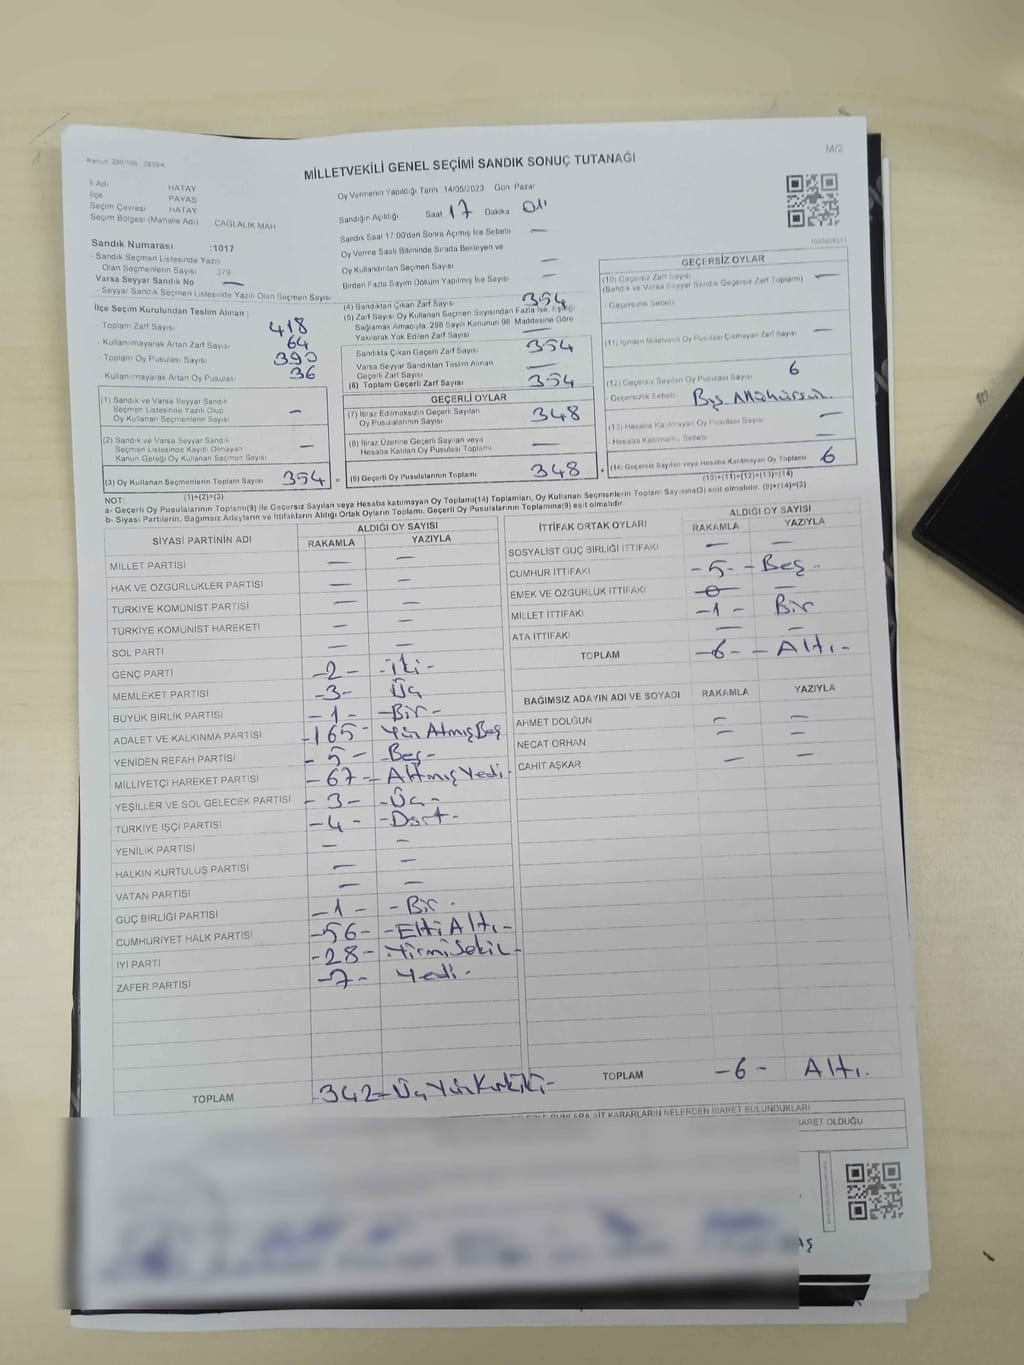 Kanun: 298/105 2839/4
M/2
MİLLETVEKİLİ GENEL SEÇİMİ SANDIK SONUÇ TUTANAĞI
İl Adı HATAY
İlçe PAYAS
Seçim Çevresi HATAY
Seçim Bölgesi (Mahalle Adı) ÇAĞLALIK MAH
Sandık Numarası :1017
- Sandık Seçmen Listesinde Yazılı
Olan Seçmenlerin Sayısı 379
Varsa Seyyar Sandık No : —
- Seyyar Sandık Seçmen Listesinde Yazılı Olan Seçmen Sayısı
Oy Vermenin Yapıldığı Tarih 14/05/2023 Gün Pazar
Sandığın Açıldığı Saat 17 Dakika 01
Sandık Saat 17.00'den Sonra Açılmış İse Sebebi —
Oy Verme Saati Bitiminde Sırada Bekleyen ve
Oy Kullandırılan Seçmen Sayısı —
Birden Fazla Sayım Döküm Yapılmış İse Sayısı —
İlçe Seçim Kurulundan Teslim Alınan :
- Toplam Zarf Sayısı 418
- Kullanılmayarak Artan Zarf Sayısı 64
- Toplam Oy Pusulası Sayısı 390
- Kullanılmayarak Artan Oy Pusulası 36
(1) Sandık ve Varsa Seyyar Sandık
Seçmen Listesinde Yazılı Olup
Oy Kullanan Seçmenlerin Sayısı —
(2) Sandık ve Varsa Seyyar Sandık
Seçmen Listesinde Kayıtlı Olmayan
Kanun Gereği Oy Kullanan Seçmen Sayısı —
(3) Oy Kullanan Seçmenlerin Toplam Sayısı 354 =
(4) Sandıktan Çıkan Zarf Sayısı 354
(5) Zarf Sayısı Oy Kullanan Seçmen Sayısından Fazla İse, Eşitliği
Sağlamak Amacıyla, 298 Sayılı Kanunun 98. Maddesine Göre
Yakılarak Yok Edilen Zarf Sayısı —
Sandıkta Çıkan Geçerli Zarf Sayısı 354
Varsa Seyyar Sandıktan Teslim Alınan
Geçerli Zarf Sayısı —
(6) Toplam Geçerli Zarf Sayısı 354
GEÇERLİ OYLAR
(7) İtiraz Edilmeksizin Geçerli Sayılan
Oy Pusulalarının Sayısı 348
(8) İtiraz Üzerine Geçerli Sayılan veya
Hesaba Katılan Oy Pusulası Toplamı —
(9) Geçerli Oy Pusulalarının Toplamı 348 +
GEÇERSİZ OYLAR
(10) Geçersiz Zarf Sayısı —
(Sandık ve Varsa Seyyar Sandık Geçersiz Zarf Toplamı)
- Geçersizlik Sebebi
(11) İçinden Milletvekili Oy Pusulası Çıkmayan Zarf Sayısı —
(12) Geçersiz Sayılan Oy Pusulası Sayısı 6
- Geçersizlik Sebebi
(13) Hesaba Katılmayan Oy Pusulası Sayısı —
- Hesaba Katılmama Sebebi —
(14) Geçersiz Sayılan veya Hesaba Katılmayan Oy Toplamı 6
(1)+(2)=(3)
(10)+(11)+(12)+(13)=(14)
NOT:
a- Geçerli Oy Pusulalarının Toplamı(9) ile Geçersiz Sayılan veya Hesaba katılmayan Oy Toplamı(14) Toplamları, Oy Kullanan Seçmenlerin Toplam Sayısına(3) eşit olmalıdır. (9)+(14)=(3)
b- Siyasi Partilerin, Bağımsız Adayların ve İttifakların Aldığı Ortak Oyların Toplamı, Geçerli Oy Pusulalarının Toplamına(9) eşit olmalıdır.
SİYASİ PARTİNİN ADI ALDIĞI OY SAYISI
RAKAMLA YAZIYLA
MİLLET PARTİSİ — —
HAK VE ÖZGÜRLÜKLER PARTİSİ — —
TÜRKİYE KOMÜNİST PARTİSİ — —
TÜRKİYE KOMÜNİST HAREKETİ — —
SOL PARTİ — —
GENÇ PARTİ -2- -İki-
MEMLEKET PARTİSİ -3- Üç
BÜYÜK BİRLİK PARTİSİ -1- -Bir-
ADALET VE KALKINMA PARTİSİ -165- Yüz Atmış Beş
YENİDEN REFAH PARTİSİ -5- -Beş-
MİLLİYETÇİ HAREKET PARTİSİ -67- -Altmış Yedi-
YEŞİLLER VE SOL GELECEK PARTİSİ -3- -Üç-
TÜRKİYE İŞÇİ PARTİSİ -4- -Dört-
YENİLİK PARTİSİ — —
HALKIN KURTULUŞ PARTİSİ — —
VATAN PARTİSİ — —
GÜÇ BİRLİĞİ PARTİSİ -1- -Bir-
CUMHURİYET HALK PARTİSİ -56- -Elli Altı-
İYİ PARTİ -28- -Yirmi Sekiz-
ZAFER PARTİSİ -7- Yedi-
TOPLAM -342- Üç Yüz Kırk İki-
İTTİFAK ORTAK OYLARI ALDIĞI OY SAYISI
RAKAMLA YAZIYLA
SOSYALİST GÜÇ BİRLİĞİ İTTİFAKI — —
CUMHUR İTTİFAKI -5- -Beş-
EMEK VE ÖZGÜRLÜK İTTİFAKI -0- —
MİLLET İTTİFAKI -1- Bir
ATA İTTİFAKI — —
TOPLAM -6- -Altı-
BAĞIMSIZ ADAYIN ADI VE SOYADI RAKAMLA YAZIYLA
AHMET DOLGUN — —
NECAT ORHAN — —
CAHİT AŞKAR — —
TOPLAM -6- Altı.
BUNLARA AİT KARARLARIN NELERDEN İBARET BULUNDUKLARI
İBARET OLDUĞU